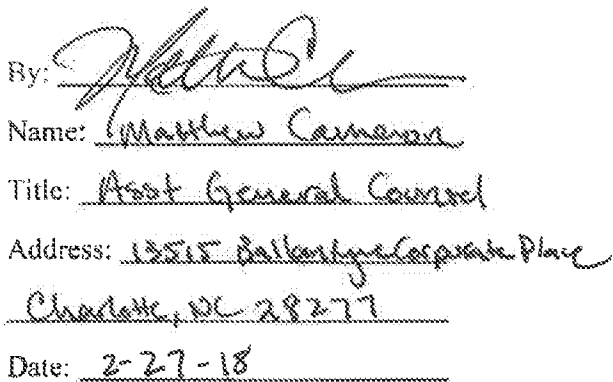 By:
Name: Matthew Cameron
Title: Asst General Counsel
Address: 13515 Ballantyne Corporate Place
Charlotte, NC 28277
Date: 2-27-18